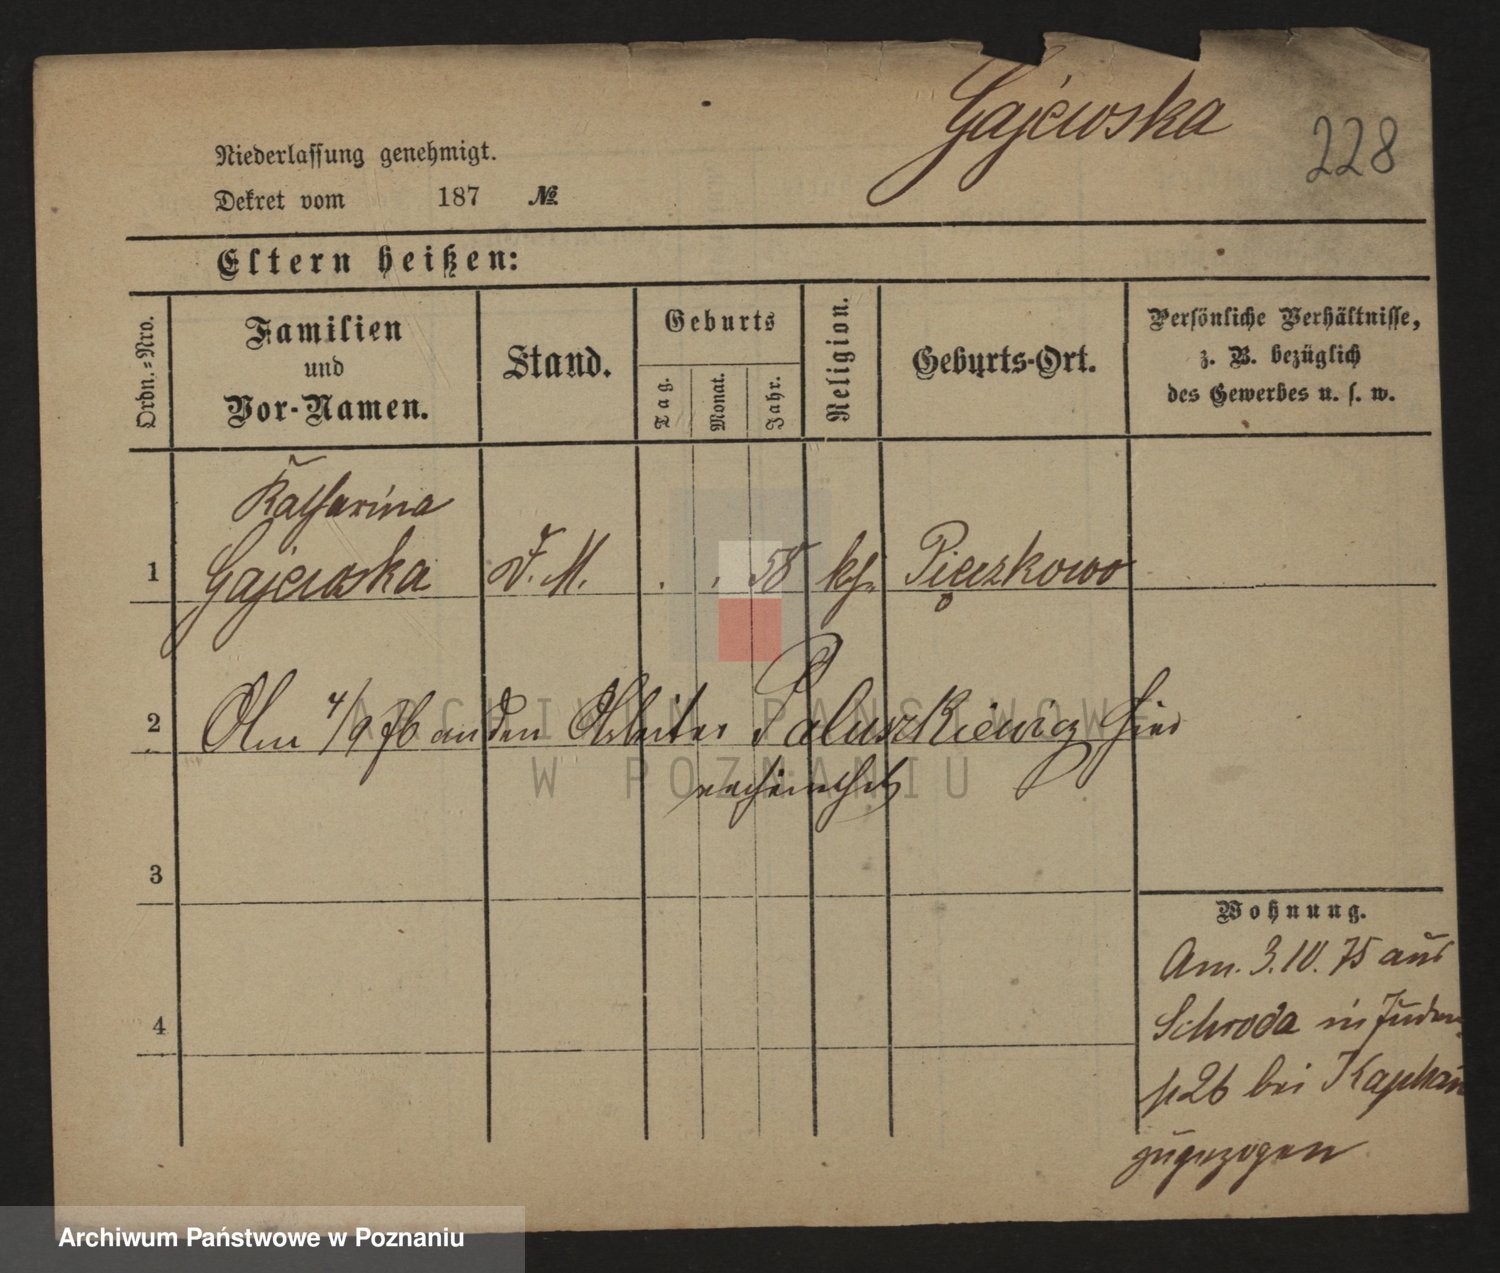 Gajewska
228
Niederlassung genehmigt.
Dekret vom 187 №
Eltern heißen:
Ordn.-Nro.
Familien
und
Vor-Namen.
Stand.
Geburts
Tag.
Monat.
Jahr.
Religion.
Geburts-Ort.
Persönliche Verhältnisse,
z. B. bezüglich
des Gewerbes u. s. w.
Katharina
1 Gajewska D. M. . . 58 kth. Pięczkowo
2 Am 4/9 76 an den Arbeiter Paluszkiewicz hier
verheirathet
3
Wohnung.
Am. 3.10.75 aus
Schroda in Juden-
str 26 bei Kaphan
zugezogen
4
ARCHIWUM PAŃSTWOWE
W POZNANIU
Archiwum Państwowe w Poznaniu